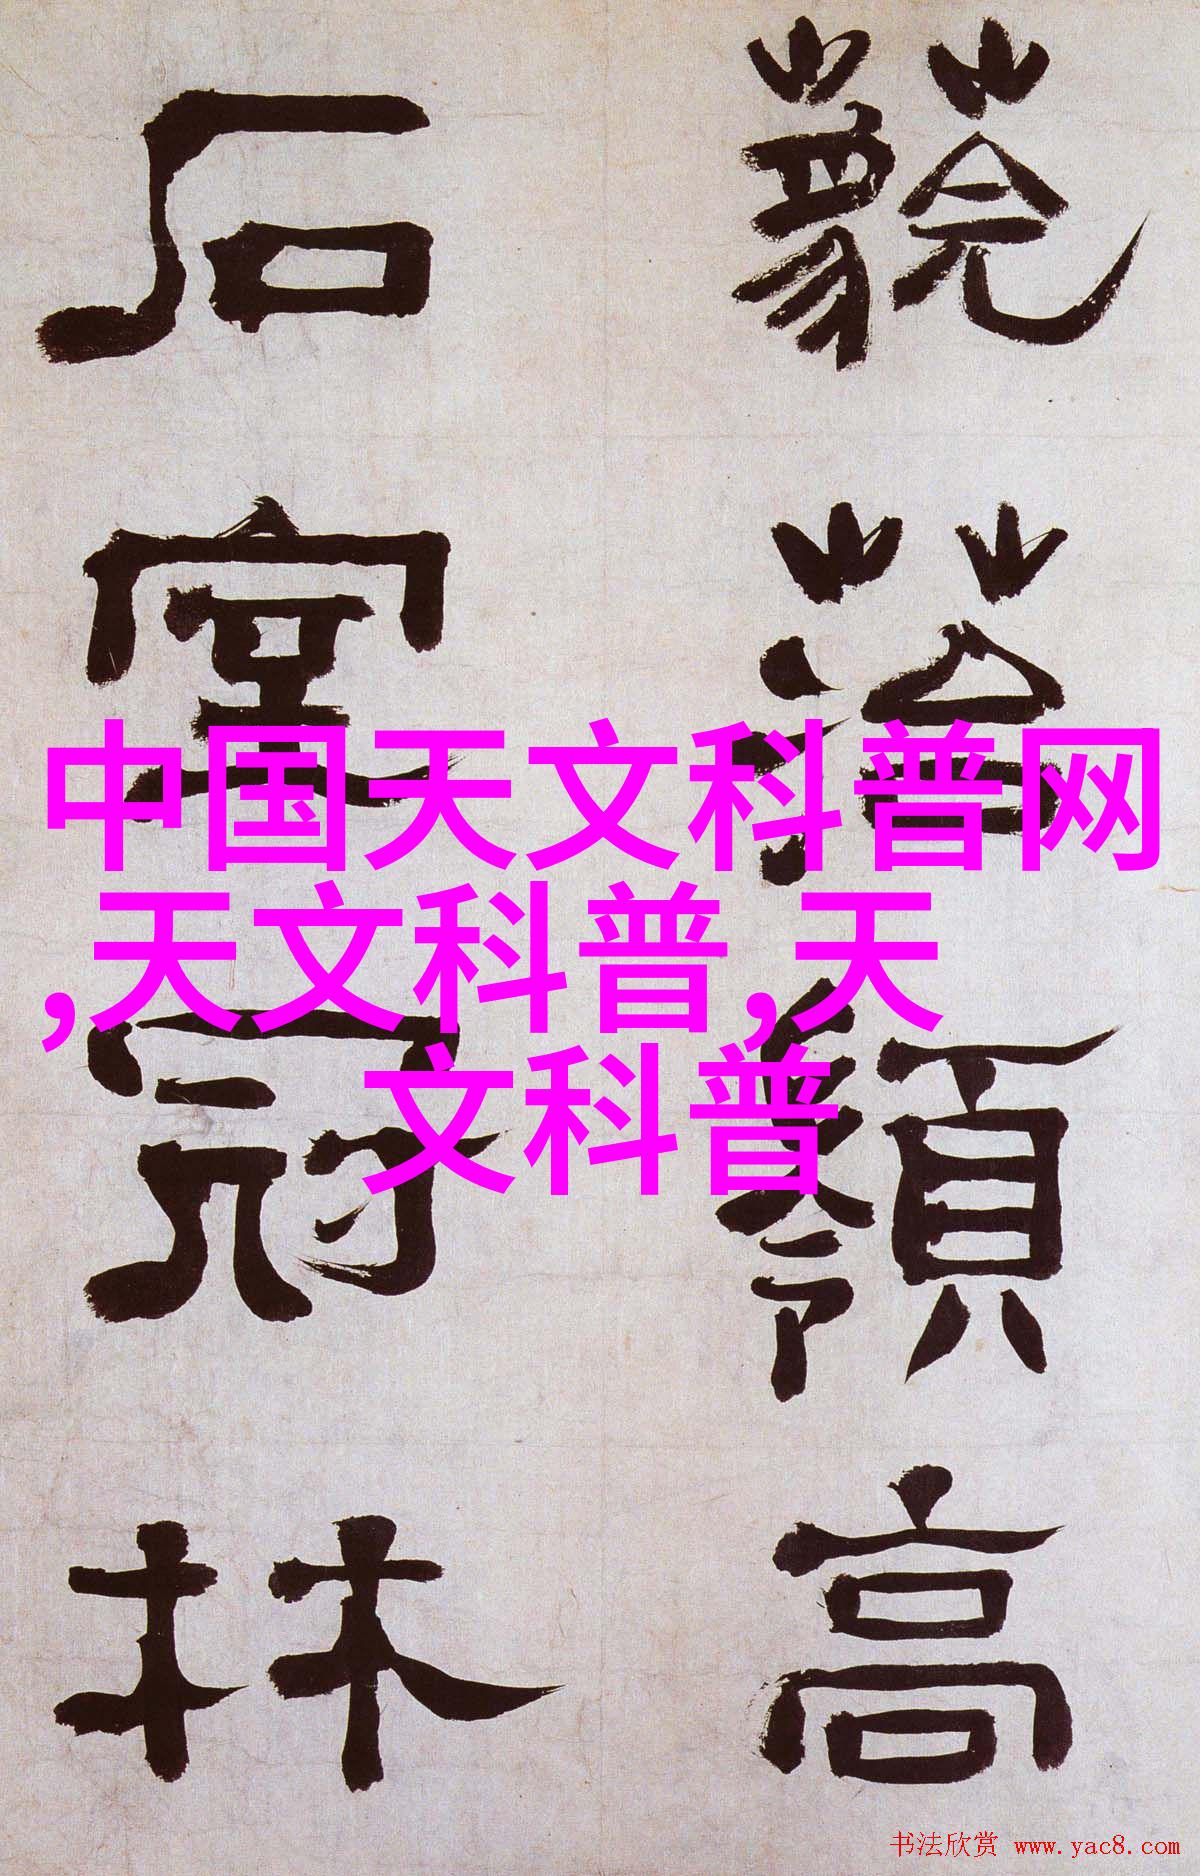 高
石室冠林
中国天文科普网
,天文科普,天
文科普
书法欣赏 www.yac8.com